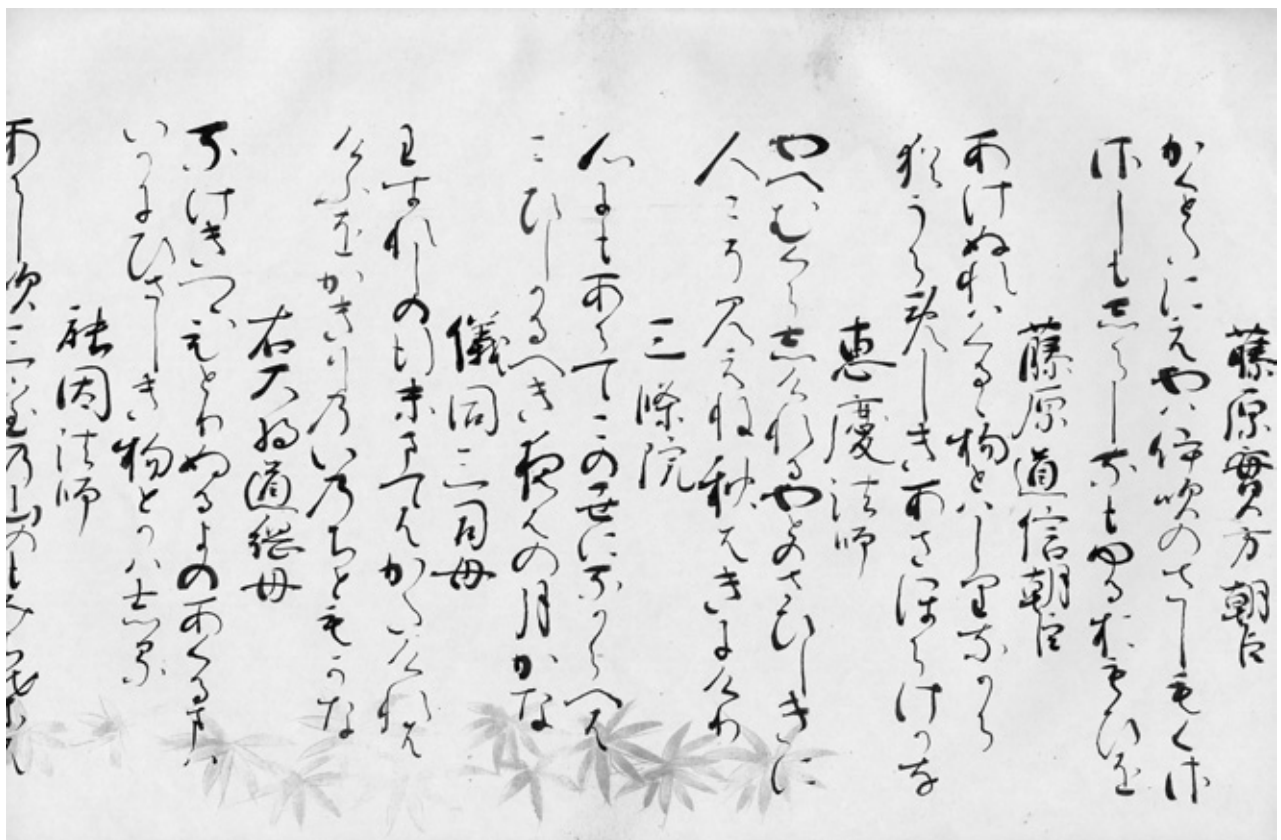 藤原實方朝臣
かくとたにえやは伊吹のさしもくさ
さしもしらしなもゆるおもひを
藤原道信朝臣
あけぬれはくるゝ物とはしりなから
猶うらめしきあさほらけかな
恵慶法師
やへむくらしけれるやとのさひしきに
人こそ見えね秋はきにけり
三條院
心にもあらてこの世になからへは
こひしかるへき夜はの月かな
儀同三司母
わすれしの行末まてはかたけれは
けふをかきりのいのちともかな
右大将道綱母
なけきつゝひとりぬるよのあくるまは
いかにひさしき物とかはしる
能因法師
あらし吹三室の山のもみちはは